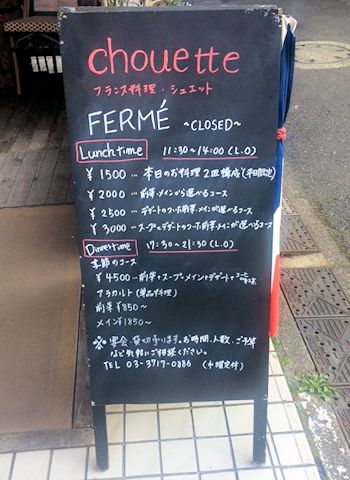 chouette
フランス料理・シュエット
FERMÉ ~CLOSED~
Lunchtime 11:30~14:00 (L.O)
¥1500... 本日のお料理2皿構成(平日限定)
¥2000... 前菜、メインから選べるコース
¥2500... デザートのついた前菜、メインが選べるコース
¥3000... スープとデザートのついた前菜、メインが選べるコース
Dinnertime 17:30~21:30 (L.O)
季節のコース
¥4500... 前菜+スープ+メイン+デザート+
アラカルト(単品料理)
前菜 ¥850~
メイン ¥1850~
※宴会、貸切承ります。お時間、人数、ご予算
など気軽にご相談ください。
TEL 03-3717-0886 (水曜定休)